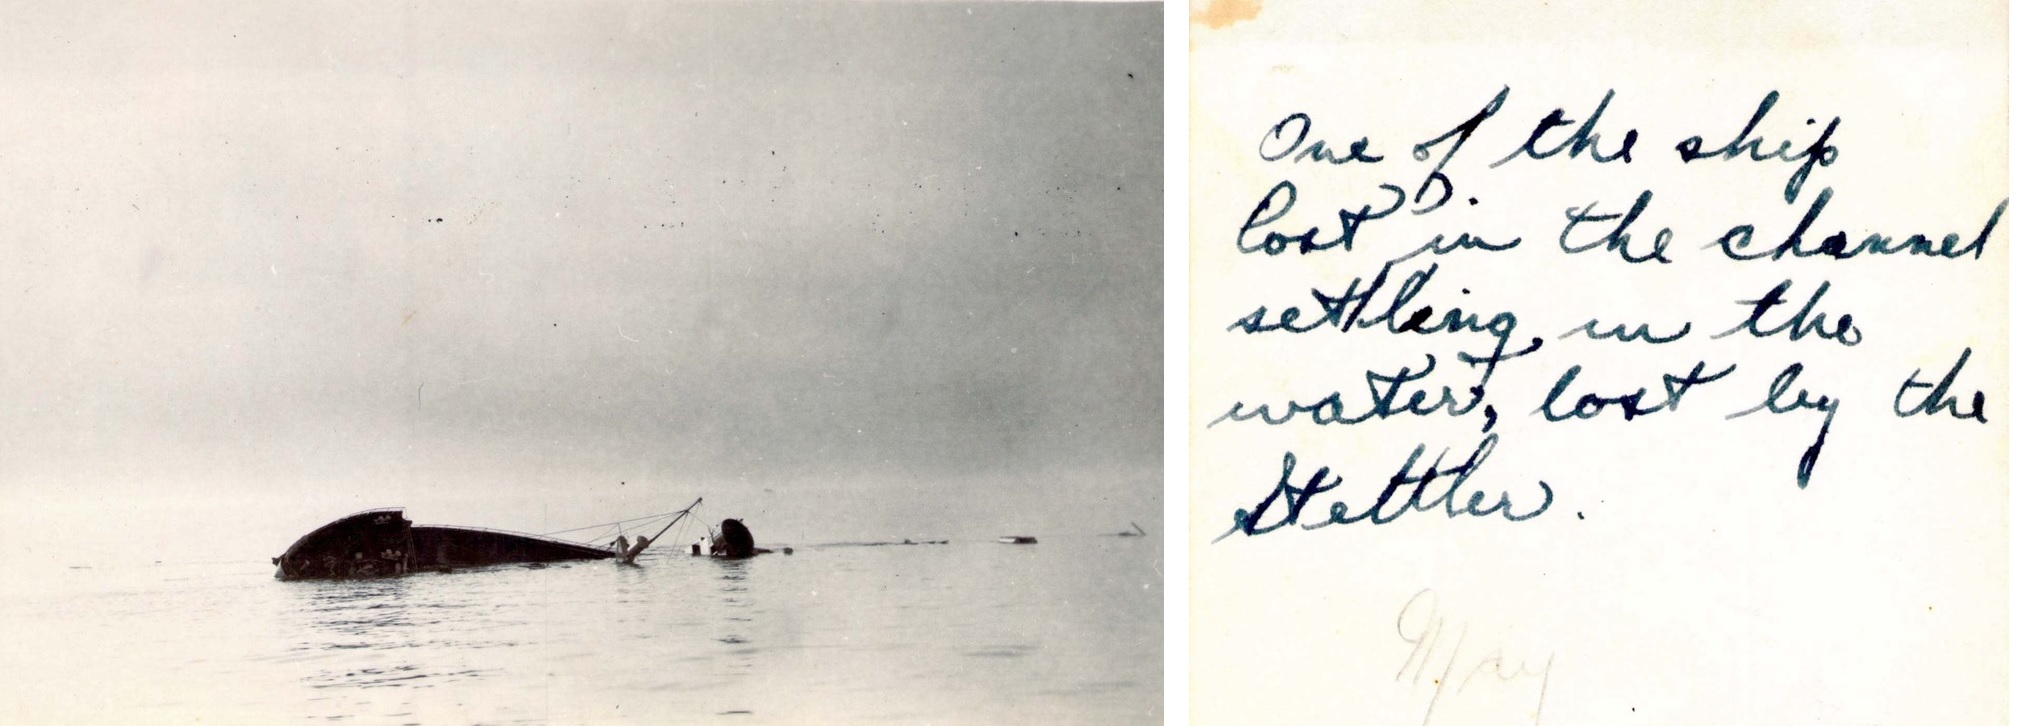 One of the ship
lost in the channel
settling in the
water, lost by the
Stettler.
May